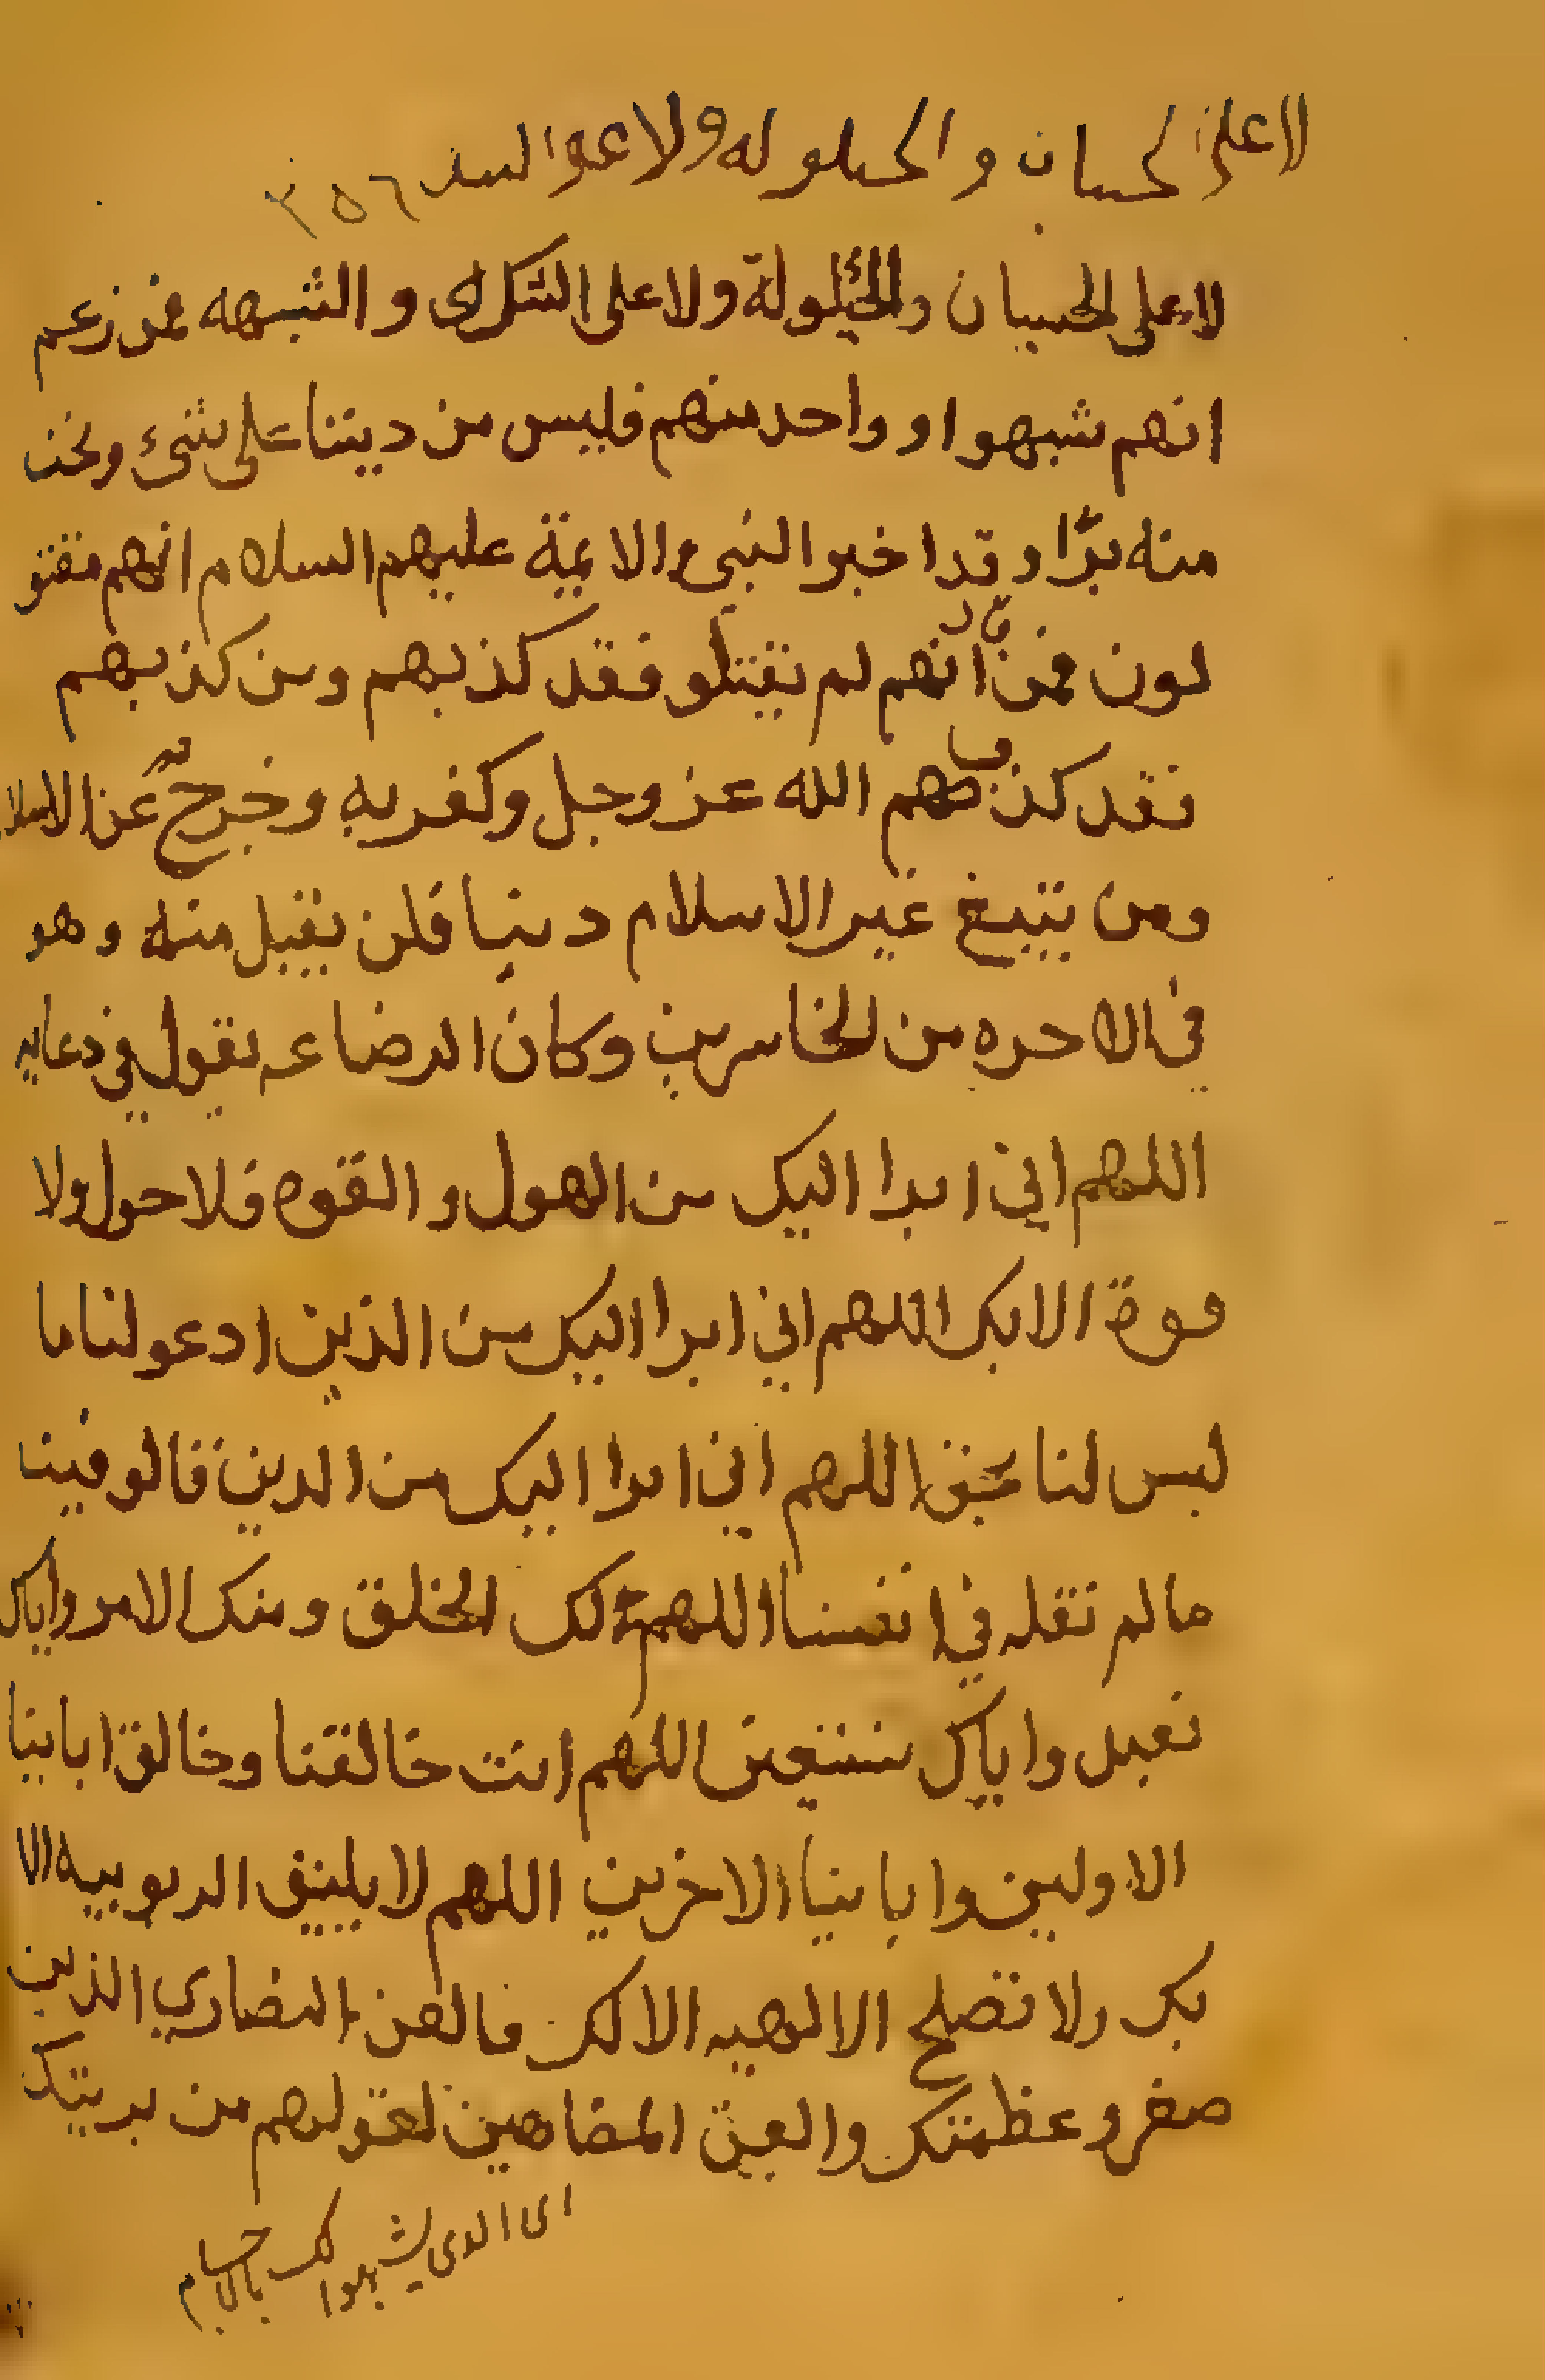 لا على الحسبان والحيلوله ولا على ا ٣٥٦
لا على الحسبان والحيلولة ولا على الشك و الشبهه فمن زعم
انهم شبهوا او واحد منهم فليس من ديننا على شئ ونحن
منه برّا و قد اخبر النبي والايمة عليهم السلام انهم مقتو
لون فمن قال انهم لم يقتلو فقد كذبهم ومن كذبهم
فقد كذب الله عز وجل وكفر به وخرج به عن الاسلام
ومن يتبغ غير الاسلام دينا فلن يقبل منه وهو
في الاحره من الخاسرين وكان الرضا عه يقول في دعايه
اللهم اني ابرا اليك من الهول و القوه فلا حول ولا
قوة الا بك اللهم اني ابرا اليك من الذين ادعو لنا ما
ليس لنا بحق اللهم اني ابرا اليك من الدين قالو فينا
ما لم نقله في انفسنا اللهم لك الخلق ومنك الامر واياك
نعبد واياك نستعين اللهم انت خالقنا وخالق ابابنا
الاولين وابابنا الاخرين اللهم لا يليق الربوبيه الا
بك ولا تصلح الالهيه الا لك فالعن النصاري الذين
صغرو عظمتك والعن المضاهين لقولهم من بريتك
اى الدى يشبهوا لك بالاجسام